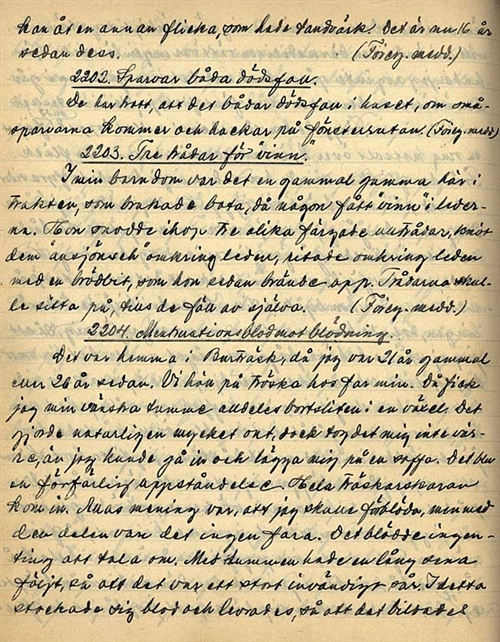 han åt en annan flicka, som hade tandvärk. Det är nu 16 år
sedan dess. (Föreg. medd.)
2202. Sparvar båda dödsfall.
De har trott, att det bådar dödsfall i huset, om små-
sparvarna kommer och hackar på fönsterrutan. (Föreg. medd)
2203. Tre trådar för "vinn."
I min barndom var det en gammal gumma här i
trakten, som brukade bota, då någon fått "vinn" i leder-
na. Hon snodde ihop tre olika färgade trådar, knöt
dem "ansjönsch" omkring leden, ritade omkring leden
med en brödbit, som hon sedan brände upp. Trådarna skul-
le sitta på, tills de föll av själva. (Föreg. medd.)
2204. Menstruationsblod mot blödning.
Det var hemma i Burbäck, då jag var 21 år gammal
eller 26 år sedan. Vi höll på tröska hos far min. Då fick
jag min vänstra tumme alldeles bortsliten i en växel. Det
gjorde naturligen mycket ont, dock tog det mig inte vär-
re, än jag kunde gå in och lägga mig på en soffa. Det blev
en förfärlig uppståndelse. Hela tröskarskaran
kom in. Allas mening var, att jag skulle förblöda, men med
den delen var det ingen fara. Det blödde ingen-
ting att tala om. Med tummen hade en lång sena
följt, så att det var ett stort invändigt sår. I detta
stockade sig blod och levrades, så att det bildades